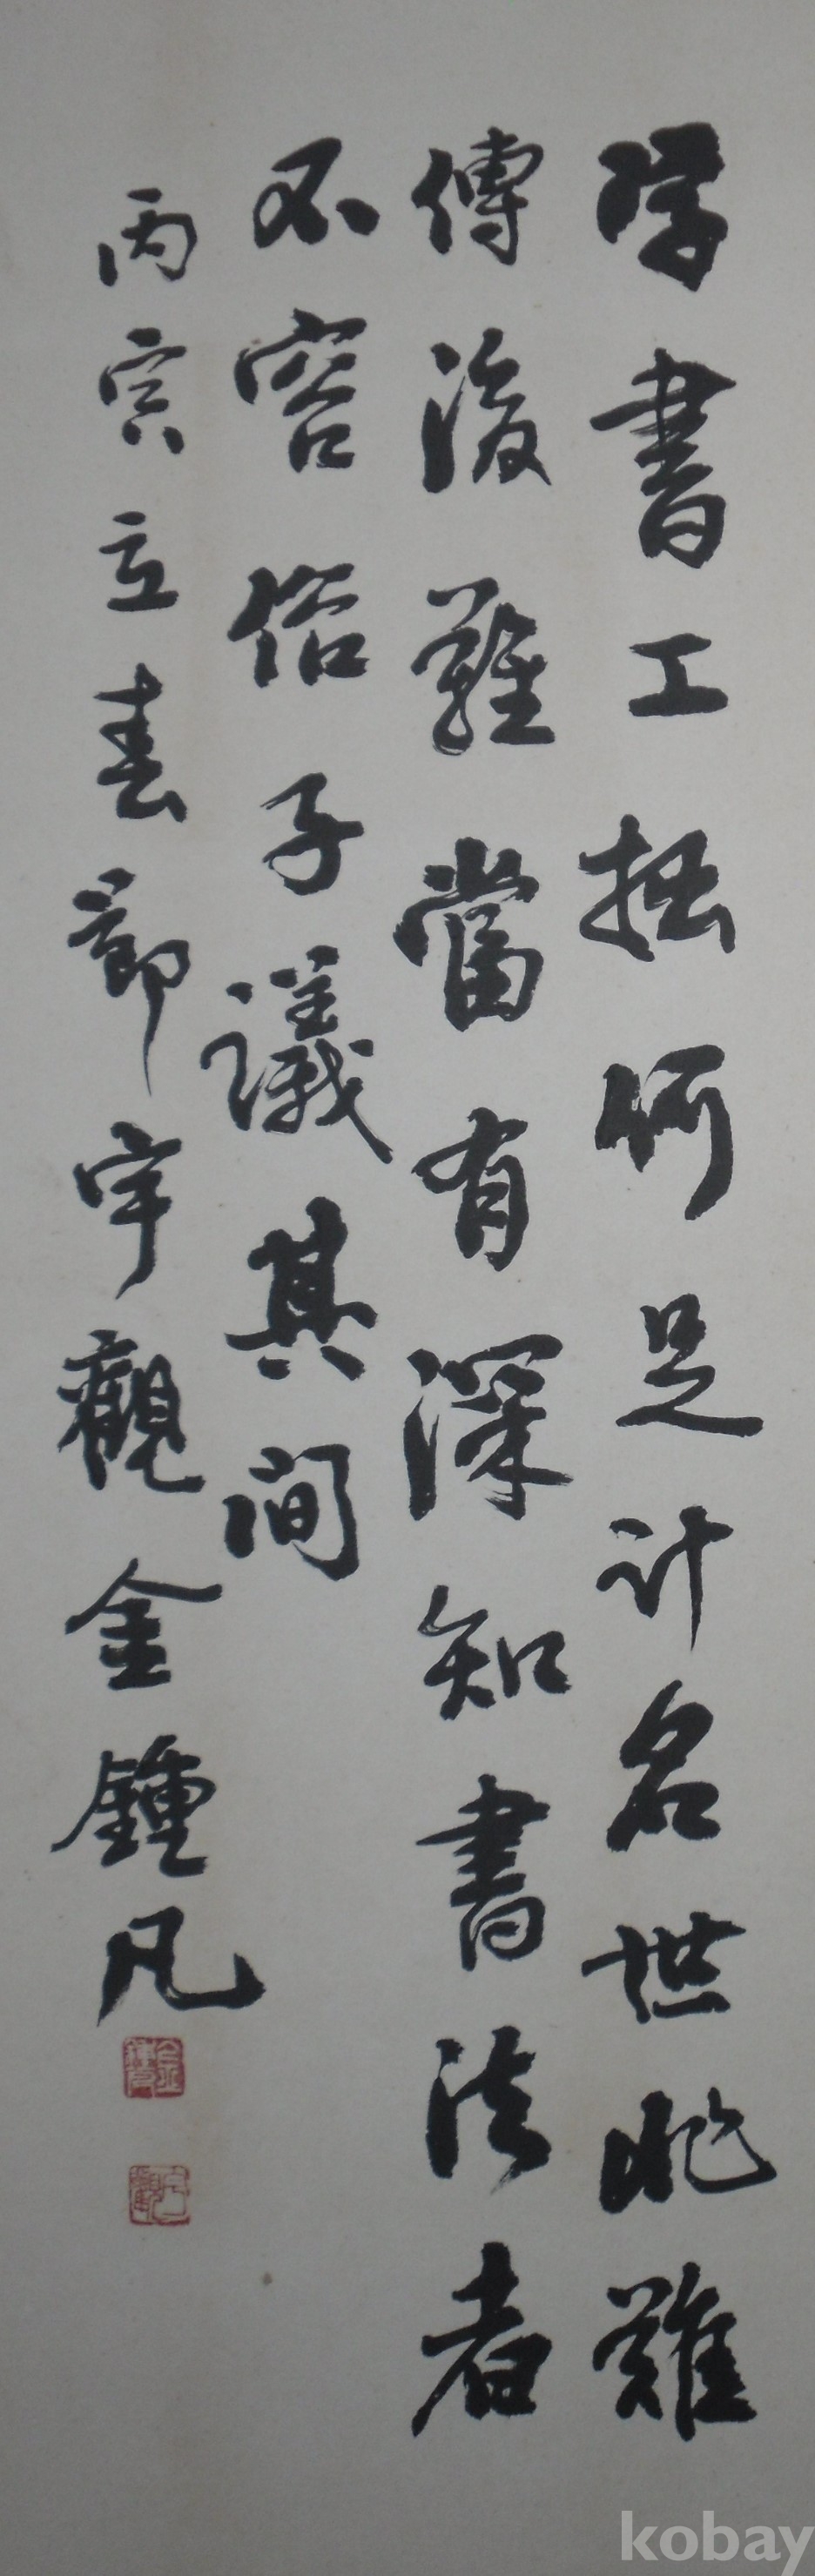 學書工拙何足計名世非難
傳後難當有深知書法者
不容俗子議其間
丙寅立春節宇觀金鍾凡
kobay